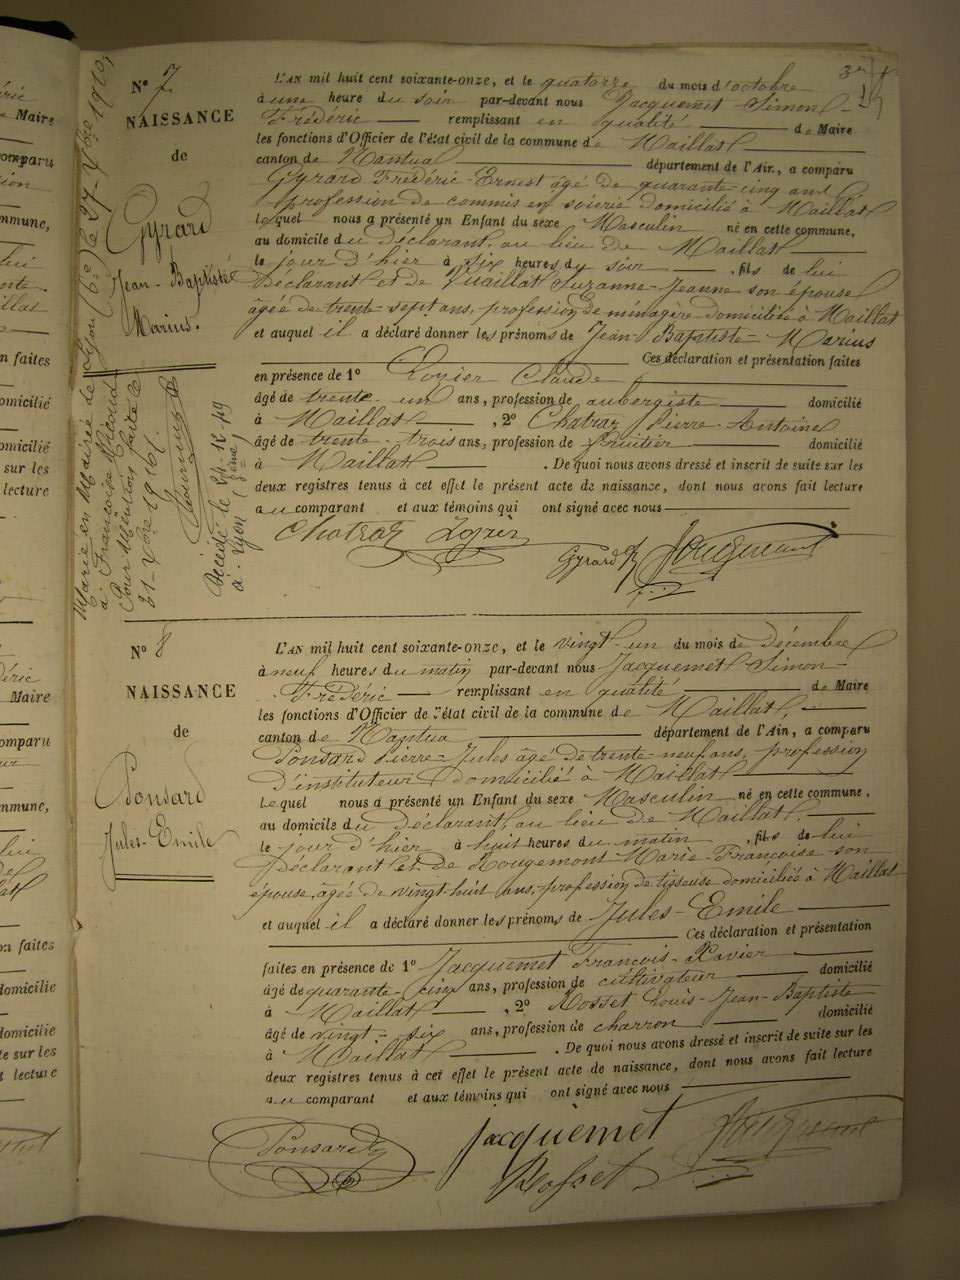 N° 7
NAISSANCE
de
Gyrard
Jean-Baptiste
Marius.
L'AN mil huit cent soixante-onze, et le quatorze du mois d'octobre
à une heure du soir par-devant nous Jacquemet Simon-
Frédéric remplissant en qualité de Maire
les fonctions d'Officier de l'état civil de la commune de Maillat
canton de Nantua département de l'Ain, a comparu
Gyrard Frédéric-Ernest âgé de quarante-cinq ans
profession de commis en soierie domicilié à Maillat
Lequel nous a présenté un Enfant du sexe Masculin né en cette commune,
au domicile du déclarant, au lieu de Maillat
le jour d'hier à six heures du soir, fils de lui
déclarant et de Vuaillat Suzanne-Jeanne son épouse
âgée de trente-sept ans, profession de ménagère domiciliée à Maillat
et auquel il a déclaré donner les prénoms de Jean-Baptiste-Marius
Ces déclaration et présentation faites
en présence de 1° Claude
âgé de trente-un ans, profession de aubergiste domicilié
à Maillat, 2° Chatraz Pierre Antoine
âgé de trente-trois ans, profession de fruitier domicilié
à Maillat. De quoi nous avons dressé et inscrit de suite sur les
deux registres tenus à cet effet le présent acte de naissance, dont nous avons fait lecture
au comparant et aux témoins qui ont signé avec nous
Chatraz Gyrard Jacquemet
Marié en Mairie de Lyon (6e) le 27 Xbre 1910,
à Françoise Micoud
Pour Mention faite le
31 Xbre 1910.
Décédé le
à Lyon
N° 8
NAISSANCE
de
Ponsard
Jules-Emile
L'AN mil huit cent soixante-onze, et le vingt-un du mois de décembre
à neuf heures du matin par-devant nous Jacquemet Simon-
Frédéric remplissant en qualité de Maire
les fonctions d'Officier de l'état civil de la commune de Maillat,
canton de Nantua département de l'Ain, a comparu
Ponsard Pierre-Jules âgé de trente-neuf ans, profession
d'instituteur domicilié à Maillat
Lequel nous a présenté un Enfant du sexe Masculin né en cette commune,
au domicile du déclarant, au lieu de Maillat,
le jour d'hier à huit heures du matin, fils de lui
déclarant et de Rougemont Marie-Françoise son
épouse, âgée de vingt-huit ans, profession de tisseuse domiciliée à Maillat
et auquel il a déclaré donner les prénoms de Jules-Emile
Ces déclaration et présentation
faites en présence de 1° Jacquemet François-Xavier
âgé de quarante-cinq ans, profession de cultivateur domicilié
à Maillat, 2° Rosset Louis-Jean-Baptiste
âgé de vingt-six ans, profession de charron domicilié
à Maillat. De quoi nous avons dressé et inscrit de suite sur les
deux registres tenus à cet effet le présent acte de naissance, dont nous avons fait lecture
au comparant et aux témoins qui ont signé avec nous
Ponsard Jacquemet Jacquemet
Rosset